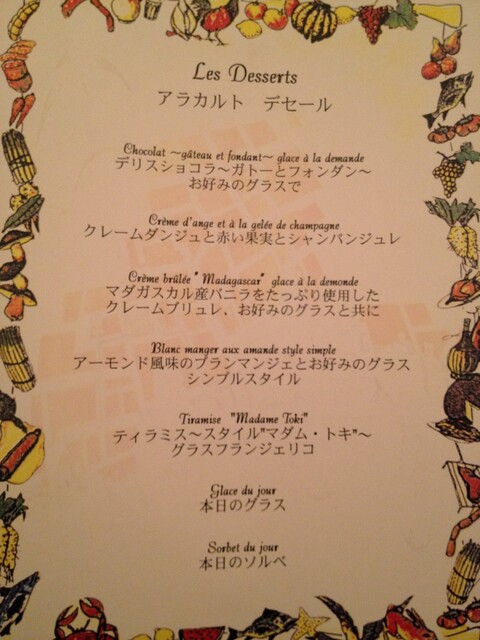 Les Desserts
アラカルト　デセール
Chocolat ～gâteau et fondant～ glace à la demande
デリスショコラ～ガトーとフォンダン～
お好みのグラスで
Crème d'ange et à la gelée de champagne
クレームダンジュと赤い果実とシャンパンジュレ
Crème brûlée "Madagascar" glace à la demonde
マダガスカル産バニラをたっぷり使用した
クレームブリュレ、お好みのグラスと共に
Blanc manger aux amande style simple
アーモンド風味のブランマンジェとお好みのグラス
シンプルスタイル
Tiramise "Madame Toki"
ティラミス～スタイル"マダム・トキ"～
グラスフランジェリコ
Glace du jour
本日のグラス
Sorbet du jour
本日のソルベ